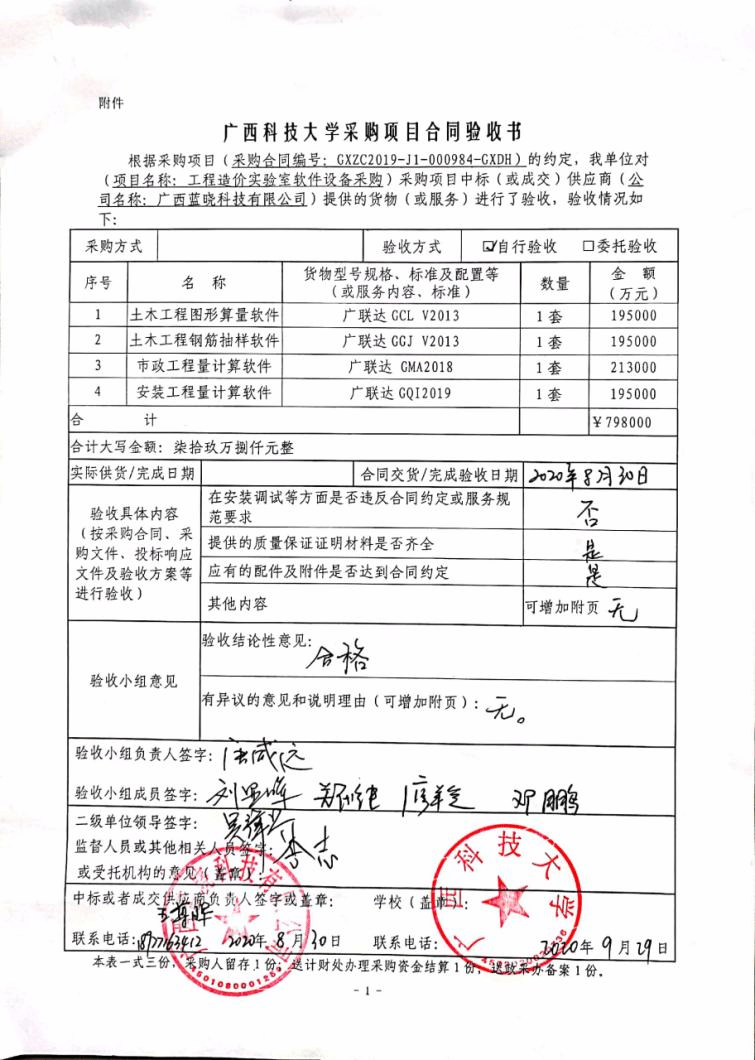 附件
广西科技大学采购项目合同验收书
根据采购项目(采购合同编号: GXZC2019-J1-000984-GXDH)的约定,我单位对
(项目名称: 工程造价实验室软件设备采购)采购项目中标(或成交)供应商(公
司名称: 广西蓝晓科技有限公司)提供的货物(或服务)进行了验收,验收情况如
下:
采购方式 验收方式 ☑自行验收 □委托验收
序号 名 称 货物型号规格、标准及配置等(或服务内容、标准) 数量 金 额(万元)
1 土木工程图形算量软件 广联达 GCL V2013 1 套 195000
2 土木工程钢筋抽样软件 广联达 GGJ V2013 1 套 195000
3 市政工程量计算软件 广联达 GMA2018 1 套 213000
4 安装工程量计算软件 广联达 GQI2019 1 套 195000
合 计 ¥798000
合计大写金额: 柒拾玖万捌仟元整
实际供货/完成日期 合同交货/完成验收日期 2020年8月30日
验收具体内容
(按采购合同、采
购文件、投标响应
文件及验收方案等
进行验收)
在安装调试等方面是否违反合同约定或服务规
范要求 否
提供的质量保证证明材料是否齐全 是
应有的配件及附件是否达到合同约定 是
其他内容 可增加附页 无
验收小组意见
验收结论性意见: 合格
有异议的意见和说明理由(可增加附页): 无。
验收小组负责人签字:
验收小组成员签字: 邓鹏
二级单位领导签字:
监督人员或其他相关人员签字:
或受托机构的意见(盖章):
中标或者成交供应商负责人签字或盖章: 学校(盖章):
联系电话: 2020年8月30日 联系电话: 2020年9月29日
广西科技大学
本表一式三份,采购人留存1份,送计财处办理采购资金结算1份,送政采办备案1份。
- 1 -